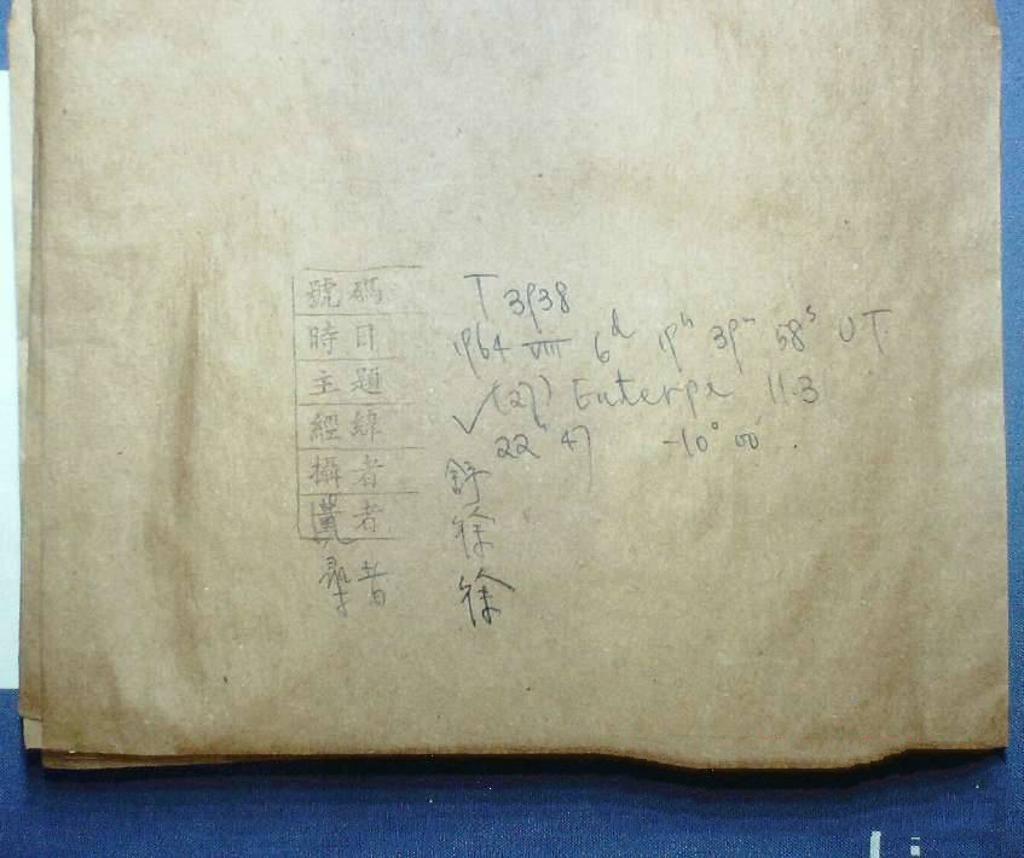 號碼 T 3938
時日 1964 VIII 6d 19h 39m 58s UT
主題 ✓(27) Euterpe 11.3
經緯 22h 47 -10° 00'
攝者 舒
者 徐
者 徐